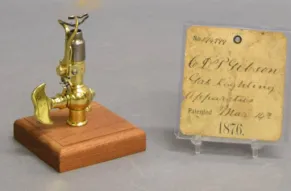 C. & P. Gibson
Gas Lighting
Apparatus
Patented Mar.
1876.